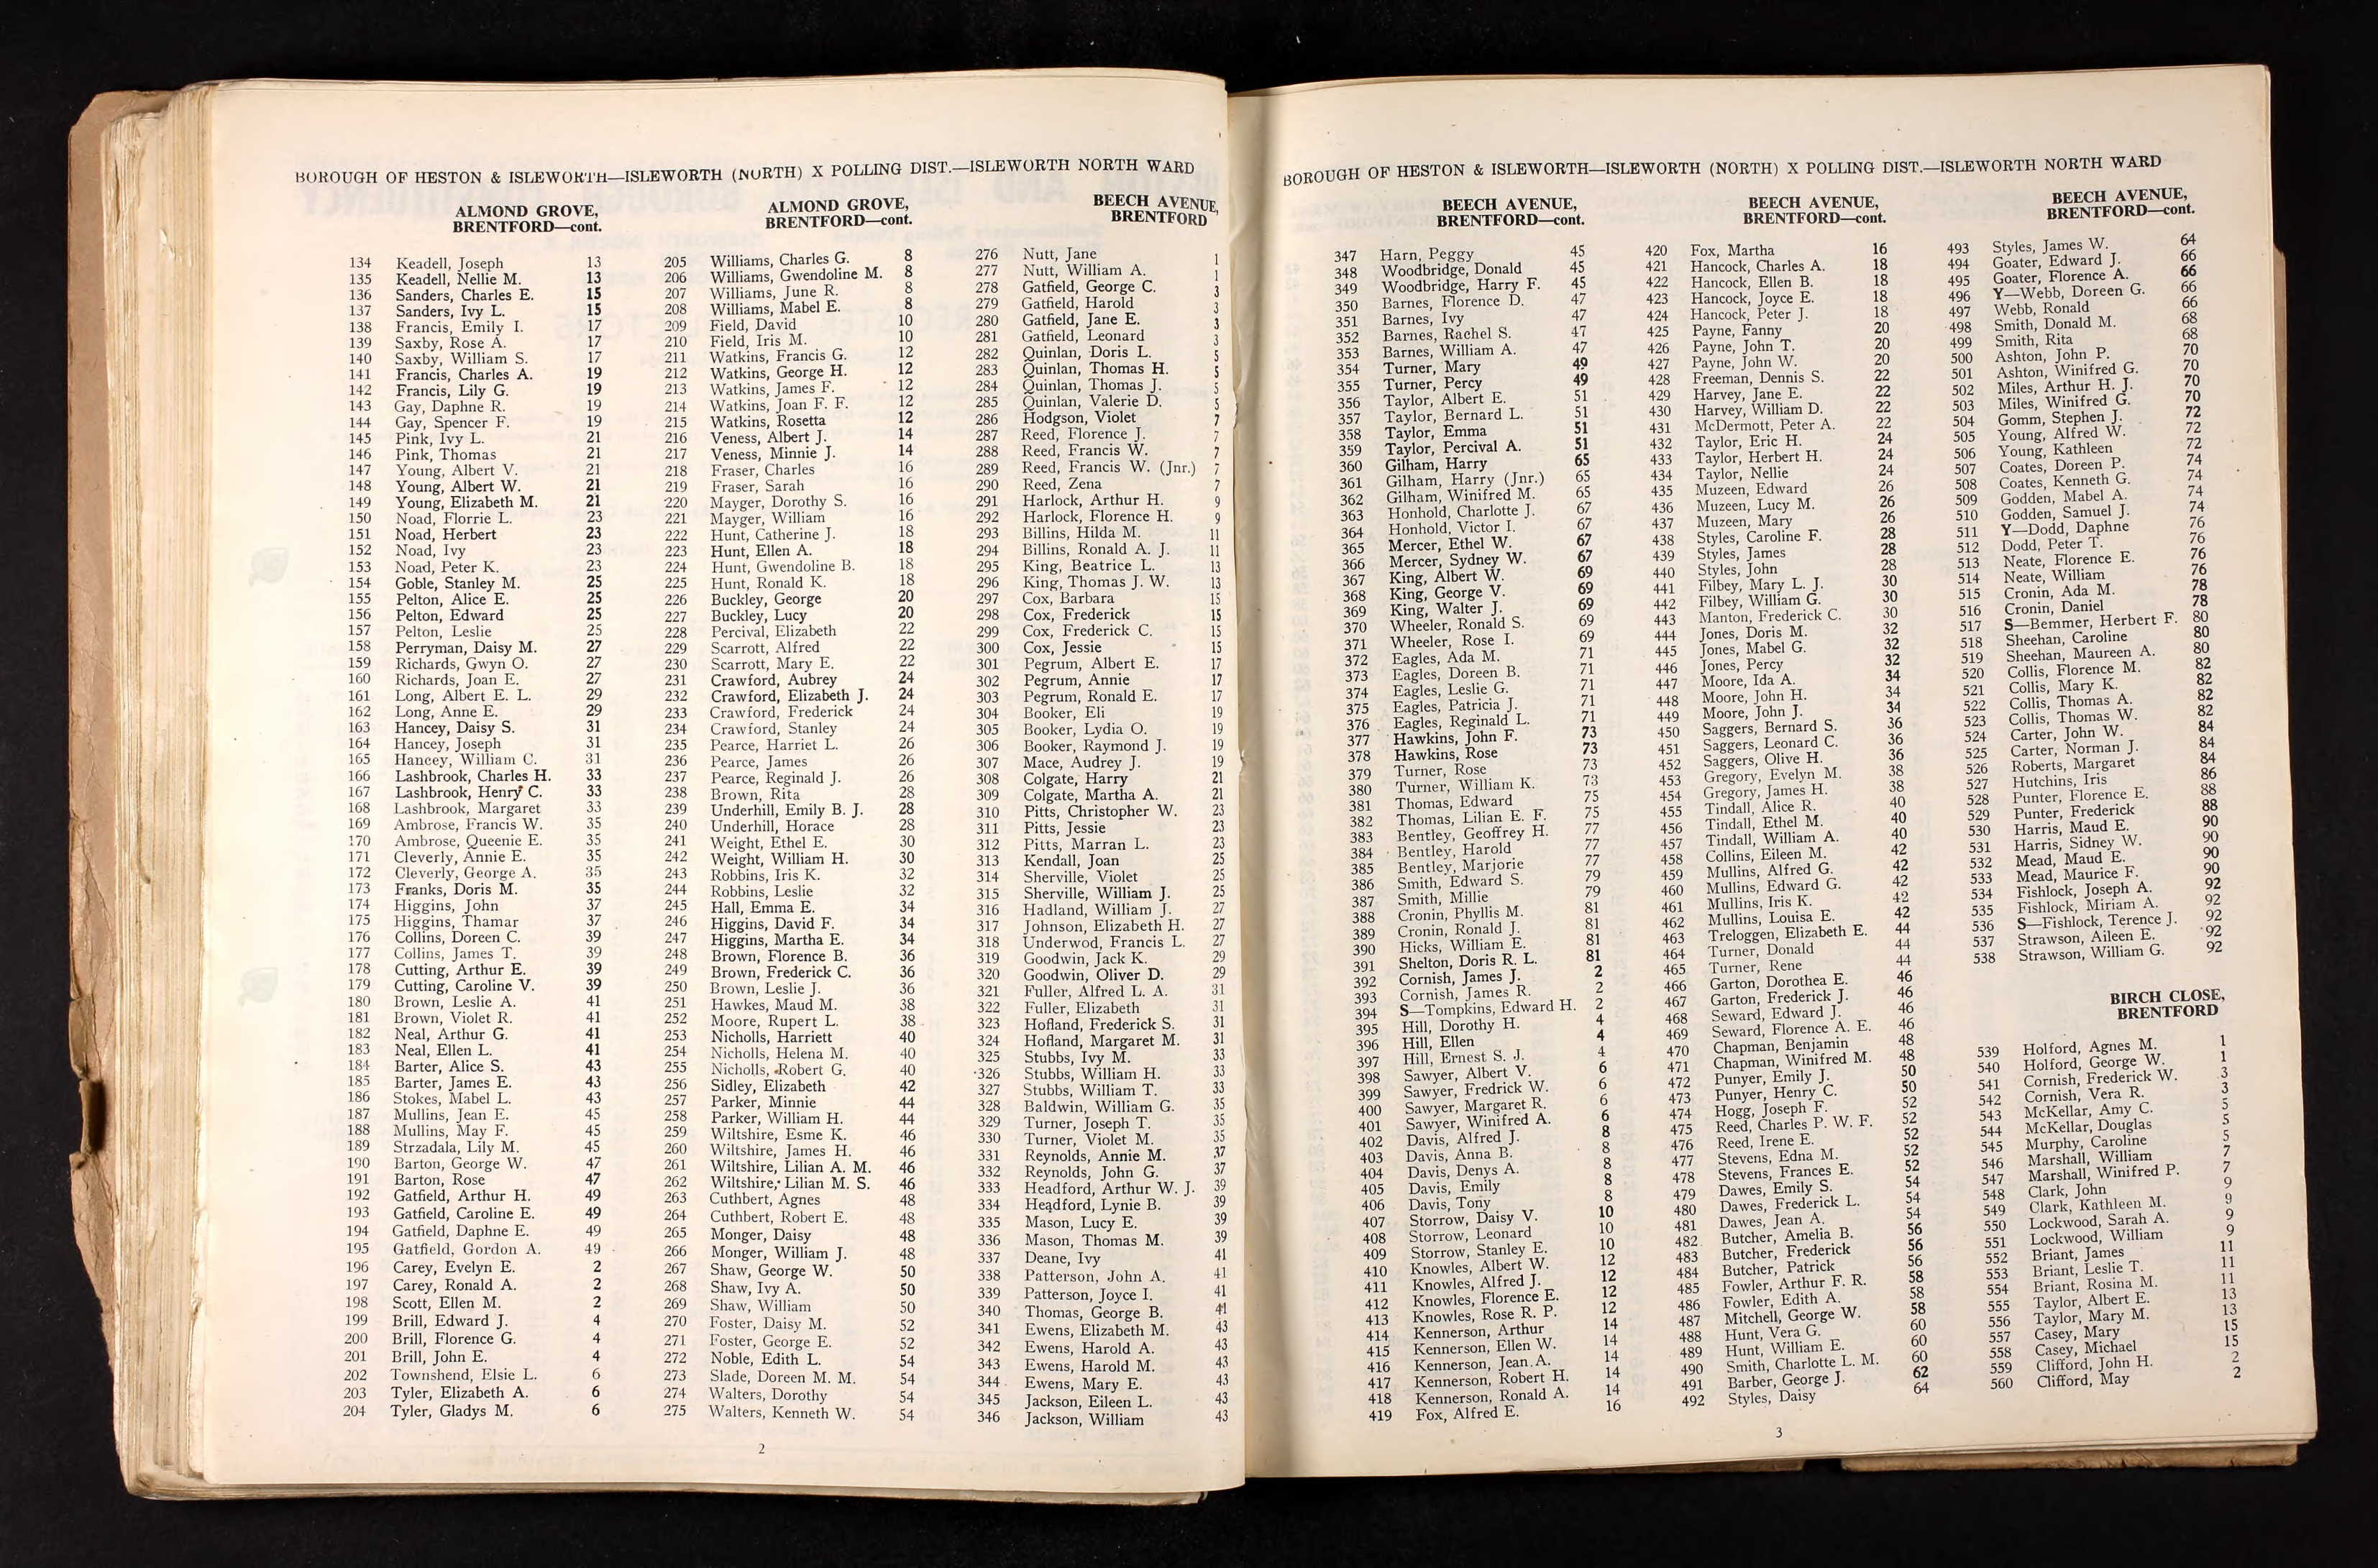 BOROUGH OF HESTON & ISLEWORTH—ISLEWORTH (NORTH) X POLLING DIST.—ISLEWORTH NORTH WARD
ALMOND GROVE,
BRENTFORD—cont.
134 Keadell, Joseph 13
135 Keadell, Nellie M. 13
136 Sanders, Charles E. 15
137 Sanders, Ivy L. 15
138 Francis, Emily I. 17
139 Saxby, Rose A. 17
140 Saxby, William S. 17
141 Francis, Charles A. 19
142 Francis, Lily G. 19
143 Gay, Daphne R. 19
144 Gay, Spencer F. 19
145 Pink, Ivy L. 21
146 Pink, Thomas 21
147 Young, Albert V. 21
148 Young, Albert W. 21
149 Young, Elizabeth M. 21
150 Noad, Florrie L. 23
151 Noad, Herbert 23
152 Noad, Ivy 23
153 Noad, Peter K. 23
154 Goble, Stanley M. 25
155 Pelton, Alice E. 25
156 Pelton, Edward 25
157 Pelton, Leslie 25
158 Perryman, Daisy M. 27
159 Richards, Gwyn O. 27
160 Richards, Joan E. 27
161 Long, Albert E. L. 29
162 Long, Anne E. 29
163 Hancey, Daisy S. 31
164 Hancey, Joseph 31
165 Hancey, William C. 31
166 Lashbrook, Charles H. 33
167 Lashbrook, Henry C. 33
168 Lashbrook, Margaret 33
169 Ambrose, Francis W. 35
170 Ambrose, Queenie E. 35
171 Cleverly, Annie E. 35
172 Cleverly, George A. 35
173 Franks, Doris M. 35
174 Higgins, John 37
175 Higgins, Thamar 37
176 Collins, Doreen C. 39
177 Collins, James T. 39
178 Cutting, Arthur E. 39
179 Cutting, Caroline V. 39
180 Brown, Leslie A. 41
181 Brown, Violet R. 41
182 Neal, Arthur G. 41
183 Neal, Ellen L. 41
184 Barter, Alice S. 43
185 Barter, James E. 43
186 Stokes, Mabel L. 43
187 Mullins, Jean E. 45
188 Mullins, May F. 45
189 Strzadala, Lily M. 45
190 Barton, George W. 47
191 Barton, Rose 47
192 Gatfield, Arthur H. 49
193 Gatfield, Caroline E. 49
194 Gatfield, Daphne E. 49
195 Gatfield, Gordon A. 49
196 Carey, Evelyn E. 2
197 Carey, Ronald A. 2
198 Scott, Ellen M. 2
199 Brill, Edward J. 4
200 Brill, Florence G. 4
201 Brill, John E. 4
202 Townshend, Elsie L. 6
203 Tyler, Elizabeth A. 6
204 Tyler, Gladys M. 6
ALMOND GROVE,
BRENTFORD—cont.
205 Williams, Charles G. 8
206 Williams, Gwendoline M. 8
207 Williams, June R. 8
208 Williams, Mabel E. 8
209 Field, David 10
210 Field, Iris M. 10
211 Watkins, Francis G. 12
212 Watkins, George H. 12
213 Watkins, James F. 12
214 Watkins, Joan F. F. 12
215 Watkins, Rosetta 12
216 Veness, Albert J. 14
217 Veness, Minnie J. 14
218 Fraser, Charles 16
219 Fraser, Sarah 16
220 Mayger, Dorothy S. 16
221 Mayger, William 16
222 Hunt, Catherine J. 18
223 Hunt, Ellen A. 18
224 Hunt, Gwendoline B. 18
225 Hunt, Ronald K. 18
226 Buckley, George 20
227 Buckley, Lucy 20
228 Percival, Elizabeth 22
229 Scarrott, Alfred 22
230 Scarrott, Mary E. 22
231 Crawford, Aubrey 24
232 Crawford, Elizabeth J. 24
233 Crawford, Frederick 24
234 Crawford, Stanley 24
235 Pearce, Harriet L. 26
236 Pearce, James 26
237 Pearce, Reginald J. 26
238 Brown, Rita 28
239 Underhill, Emily B. J. 28
240 Underhill, Horace 28
241 Weight, Ethel E. 30
242 Weight, William H. 30
243 Robbins, Iris K. 32
244 Robbins, Leslie 32
245 Hall, Emma E. 34
246 Higgins, David F. 34
247 Higgins, Martha E. 34
248 Brown, Florence B. 36
249 Brown, Frederick C. 36
250 Brown, Leslie J. 36
251 Hawkes, Maud M. 38
252 Moore, Rupert L. 38
253 Nicholls, Harriett 40
254 Nicholls, Helena M. 40
255 Nicholls, Robert G. 40
256 Sidley, Elizabeth 42
257 Parker, Minnie 44
258 Parker, William H. 44
259 Wiltshire, Esme K. 46
260 Wiltshire, James H. 46
261 Wiltshire, Lilian A. M. 46
262 Wiltshire, Lilian M. S. 46
263 Cuthbert, Agnes 48
264 Cuthbert, Robert E. 48
265 Monger, Daisy 48
266 Monger, William J. 48
267 Shaw, George W. 50
268 Shaw, Ivy A. 50
269 Shaw, William 50
270 Foster, Daisy M. 52
271 Foster, George E. 52
272 Noble, Edith L. 54
273 Slade, Doreen M. M. 54
274 Walters, Dorothy 54
275 Walters, Kenneth W. 54
BEECH AVENUE,
BRENTFORD
276 Nutt, Jane 1
277 Nutt, William A. 1
278 Gatfield, George C. 3
279 Gatfield, Harold 3
280 Gatfield, Jane E. 3
281 Gatfield, Leonard 3
282 Quinlan, Doris L. 5
283 Quinlan, Thomas H. 5
284 Quinlan, Thomas J. 5
285 Quinlan, Valerie D. 5
286 Hodgson, Violet 7
287 Reed, Florence J. 7
288 Reed, Francis W. 7
289 Reed, Francis W. (Jnr.) 7
290 Reed, Zena 7
291 Harlock, Arthur H. 9
292 Harlock, Florence H. 9
293 Billins, Hilda M. 11
294 Billins, Ronald A. J. 11
295 King, Beatrice L. 13
296 King, Thomas J. W. 13
297 Cox, Barbara 15
298 Cox, Frederick 15
299 Cox, Frederick C. 15
300 Cox, Jessie 15
301 Pegrum, Albert E. 17
302 Pegrum, Annie 17
303 Pegrum, Ronald E. 17
304 Booker, Eli 19
305 Booker, Lydia O. 19
306 Booker, Raymond J. 19
307 Mace, Audrey J. 19
308 Colgate, Harry 21
309 Colgate, Martha A. 21
310 Pitts, Christopher W. 23
311 Pitts, Jessie 23
312 Pitts, Marran L. 23
313 Kendall, Joan 25
314 Sherville, Violet 25
315 Sherville, William J. 25
316 Hadland, William J. 27
317 Johnson, Elizabeth H. 27
318 Underwod, Francis L. 27
319 Goodwin, Jack K. 29
320 Goodwin, Oliver D. 29
321 Fuller, Alfred L. A. 31
322 Fuller, Elizabeth 31
323 Hofland, Frederick S. 31
324 Hofland, Margaret M. 31
325 Stubbs, Ivy M. 33
326 Stubbs, William H. 33
327 Stubbs, William T. 33
328 Baldwin, William G. 35
329 Turner, Joseph T. 35
330 Turner, Violet M. 35
331 Reynolds, Annie M. 37
332 Reynolds, John G. 37
333 Headford, Arthur W. J. 39
334 Headford, Lynie B. 39
335 Mason, Lucy E. 39
336 Mason, Thomas M. 39
337 Deane, Ivy 41
338 Patterson, John A. 41
339 Patterson, Joyce I. 41
340 Thomas, George B. 41
341 Ewens, Elizabeth M. 43
342 Ewens, Harold A. 43
343 Ewens, Harold M. 43
344 Ewens, Mary E. 43
345 Jackson, Eileen L. 43
346 Jackson, William 43
2
BOROUGH OF HESTON & ISLEWORTH—ISLEWORTH (NORTH) X POLLING DIST.—ISLEWORTH NORTH WARD
BEECH AVENUE,
BRENTFORD—cont.
347 Harn, Peggy 45
348 Woodbridge, Donald 45
349 Woodbridge, Harry F. 45
350 Barnes, Florence D. 47
351 Barnes, Ivy 47
352 Barnes, Rachel S. 47
353 Barnes, William A. 47
354 Turner, Mary 49
355 Turner, Percy 49
356 Taylor, Albert E. 51
357 Taylor, Bernard L. 51
358 Taylor, Emma 51
359 Taylor, Percival A. 51
360 Gilham, Harry 65
361 Gilham, Harry (Jnr.) 65
362 Gilham, Winifred M. 65
363 Honhold, Charlotte J. 67
364 Honhold, Victor I. 67
365 Mercer, Ethel W. 67
366 Mercer, Sydney W. 67
367 King, Albert W. 69
368 King, George V. 69
369 King, Walter J. 69
370 Wheeler, Ronald S. 69
371 Wheeler, Rose I. 69
372 Eagles, Ada M. 71
373 Eagles, Doreen B. 71
374 Eagles, Leslie G. 71
375 Eagles, Patricia J. 71
376 Eagles, Reginald L. 71
377 Hawkins, John F. 73
378 Hawkins, Rose 73
379 Turner, Rose 73
380 Turner, William K. 73
381 Thomas, Edward 75
382 Thomas, Lilian E. F. 75
383 Bentley, Geoffrey H. 77
384 Bentley, Harold 77
385 Bentley, Marjorie 77
386 Smith, Edward S. 79
387 Smith, Millie 79
388 Cronin, Phyllis M. 81
389 Cronin, Ronald J. 81
390 Hicks, William E. 81
391 Shelton, Doris R. L. 81
392 Cornish, James J. 2
393 Cornish, James R. 2
394 S—Tompkins, Edward H. 2
395 Hill, Dorothy H. 4
396 Hill, Ellen 4
397 Hill, Ernest S. J. 4
398 Sawyer, Albert V. 6
399 Sawyer, Fredrick W. 6
400 Sawyer, Margaret R. 6
401 Sawyer, Winifred A. 6
402 Davis, Alfred J. 8
403 Davis, Anna B. 8
404 Davis, Denys A. 8
405 Davis, Emily 8
406 Davis, Tony 8
407 Storrow, Daisy V. 10
408 Storrow, Leonard 10
409 Storrow, Stanley E. 10
410 Knowles, Albert W. 12
411 Knowles, Alfred J. 12
412 Knowles, Florence E. 12
413 Knowles, Rose R. P. 12
414 Kennerson, Arthur 14
415 Kennerson, Ellen W. 14
416 Kennerson, Jean A. 14
417 Kennerson, Robert H. 14
418 Kennerson, Ronald A. 14
419 Fox, Alfred E. 16
BEECH AVENUE,
BRENTFORD—cont.
420 Fox, Martha 16
421 Hancock, Charles A. 18
422 Hancock, Ellen B. 18
423 Hancock, Joyce E. 18
424 Hancock, Peter J. 18
425 Payne, Fanny 20
426 Payne, John T. 20
427 Payne, John W. 20
428 Freeman, Dennis S. 22
429 Harvey, Jane E. 22
430 Harvey, William D. 22
431 McDermott, Peter A. 22
432 Taylor, Eric H. 24
433 Taylor, Herbert H. 24
434 Taylor, Nellie 24
435 Muzeen, Edward 26
436 Muzeen, Lucy M. 26
437 Muzeen, Mary 26
438 Styles, Caroline F. 28
439 Styles, James 28
440 Styles, John 28
441 Filbey, Mary L. J. 30
442 Filbey, William G. 30
443 Manton, Frederick C. 30
444 Jones, Doris M. 32
445 Jones, Mabel G. 32
446 Jones, Percy 32
447 Moore, Ida A. 34
448 Moore, John H. 34
449 Moore, John J. 34
450 Saggers, Bernard S. 36
451 Saggers, Leonard C. 36
452 Saggers, Olive H. 36
453 Gregory, Evelyn M. 38
454 Gregory, James H. 38
455 Tindall, Alice R. 40
456 Tindall, Ethel M. 40
457 Tindall, William A. 40
458 Collins, Eileen M. 42
459 Mullins, Alfred G. 42
460 Mullins, Edward G. 42
461 Mullins, Iris K. 42
462 Mullins, Louisa E. 42
463 Treloggen, Elizabeth E. 44
464 Turner, Donald 44
465 Turner, Rene 44
466 Garton, Dorothea E. 46
467 Garton, Frederick J. 46
468 Seward, Edward J. 46
469 Seward, Florence A. E. 46
470 Chapman, Benjamin 48
471 Chapman, Winifred M. 48
472 Punyer, Emily J. 50
473 Punyer, Henry C. 50
474 Hogg, Joseph F. 52
475 Reed, Charles P. W. F. 52
476 Reed, Irene E. 52
477 Stevens, Edna M. 52
478 Stevens, Frances E. 52
479 Dawes, Emily S. 54
480 Dawes, Frederick L. 54
481 Dawes, Jean A. 54
482 Butcher, Amelia B. 56
483 Butcher, Frederick 56
484 Butcher, Patrick 56
485 Fowler, Arthur F. R. 58
486 Fowler, Edith A. 58
487 Mitchell, George W. 58
488 Hunt, Vera G. 60
489 Hunt, William E. 60
490 Smith, Charlotte L. M. 60
491 Barber, George J. 62
492 Styles, Daisy 64
BEECH AVENUE,
BRENTFORD—cont.
493 Styles, James W. 64
494 Goater, Edward J. 66
495 Goater, Florence A. 66
496 Y—Webb, Doreen G. 66
497 Webb, Ronald 66
498 Smith, Donald M. 68
499 Smith, Rita 68
500 Ashton, John P. 70
501 Ashton, Winifred G. 70
502 Miles, Arthur H. J. 70
503 Miles, Winifred G. 70
504 Gomm, Stephen J. 72
505 Young, Alfred W. 72
506 Young, Kathleen 72
507 Coates, Doreen P. 74
508 Coates, Kenneth G. 74
509 Godden, Mabel A. 74
510 Godden, Samuel J. 74
511 Y—Dodd, Daphne 76
512 Dodd, Peter T. 76
513 Neate, Florence E. 76
514 Neate, William 76
515 Cronin, Ada M. 78
516 Cronin, Daniel 78
517 S—Bemmer, Herbert F. 80
518 Sheehan, Caroline 80
519 Sheehan, Maureen A. 80
520 Collis, Florence M. 82
521 Collis, Mary K. 82
522 Collis, Thomas A. 82
523 Collis, Thomas W. 82
524 Carter, John W. 84
525 Carter, Norman J. 84
526 Roberts, Margaret 84
527 Hutchins, Iris 86
528 Punter, Florence E. 88
529 Punter, Frederick 88
530 Harris, Maud E. 90
531 Harris, Sidney W. 90
532 Mead, Maud E. 90
533 Mead, Maurice F. 90
534 Fishlock, Joseph A. 92
535 Fishlock, Miriam A. 92
536 S—Fishlock, Terence J. 92
537 Strawson, Aileen E. 92
538 Strawson, William G. 92
BIRCH CLOSE,
BRENTFORD
539 Holford, Agnes M. 1
540 Holford, George W. 1
541 Cornish, Frederick W. 3
542 Cornish, Vera R. 3
543 McKellar, Amy C. 5
544 McKellar, Douglas 5
545 Murphy, Caroline 5
546 Marshall, William 7
547 Marshall, Winifred P. 7
548 Clark, John 9
549 Clark, Kathleen M. 9
550 Lockwood, Sarah A. 9
551 Lockwood, William 9
552 Briant, James 11
553 Briant, Leslie T. 11
554 Briant, Rosina M. 11
555 Taylor, Albert E. 13
556 Taylor, Mary M. 13
557 Casey, Mary 15
558 Casey, Michael 15
559 Clifford, John H. 2
560 Clifford, May 2
3